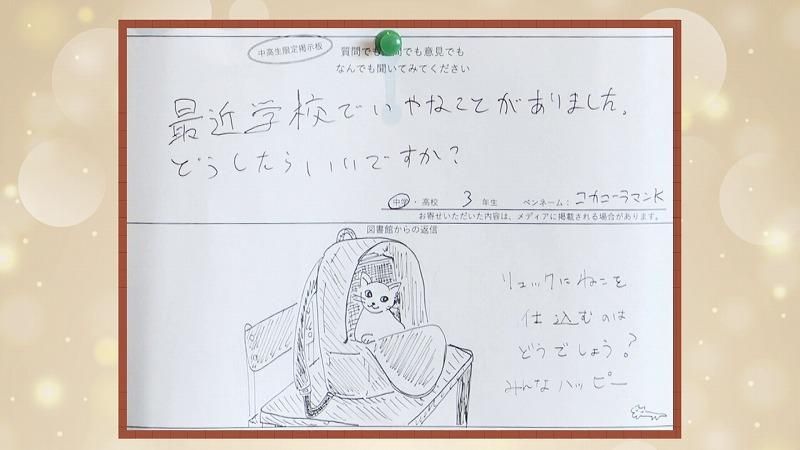 中高生限定掲示板
質問でも 問でも意見でも
なんでも聞いてみてください
最近学校でいやなことがありました。
どうしたらいいですか?
中学・高校 3 年生 ペンネーム: コカコーラマンK
お寄せいただいた内容は、メディアに掲載される場合があります。
図書館からの返信
リュックにねこを
仕込むのは
どうでしょう?
みんなハッピー